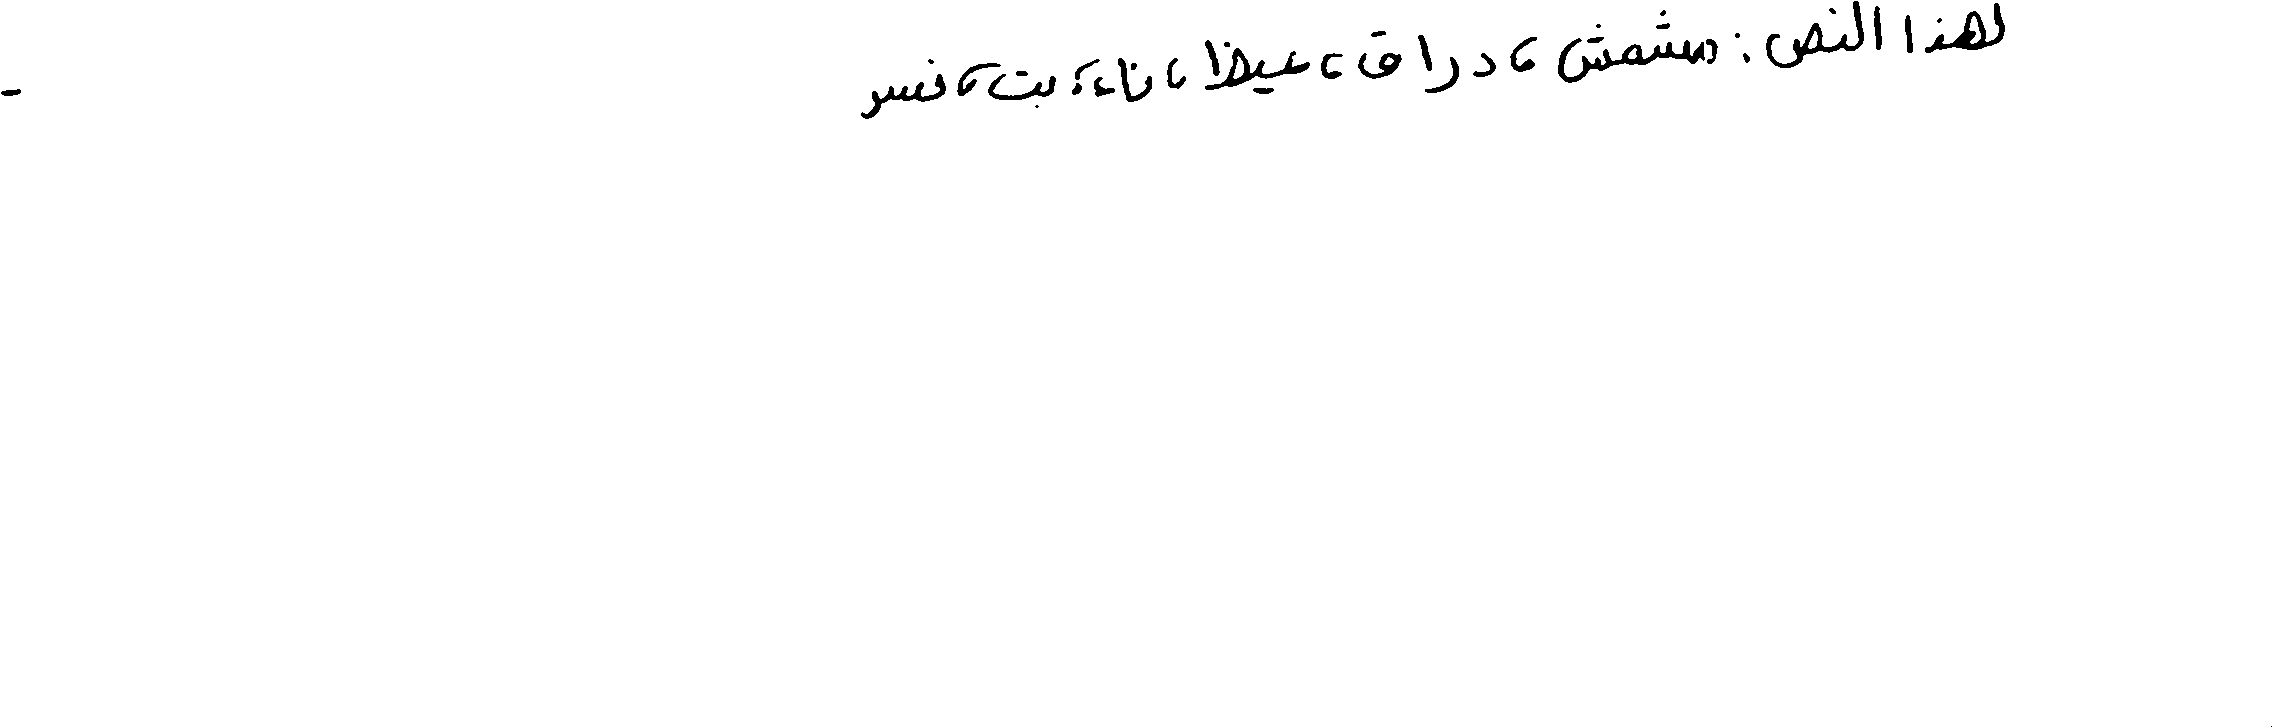 لهذا النص: مشمش، دراق، عيظا، ناء، بت، فسر